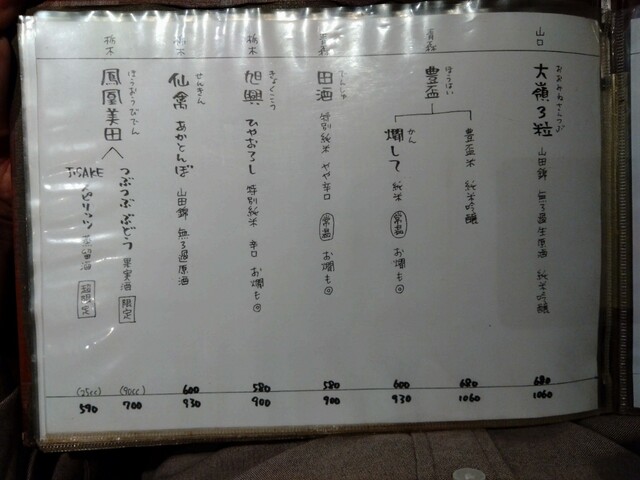 山口
大嶺3粒 おおみねさんつぶ 山田錦 無ろ過生原酒 純米吟醸 680 1060
青森
豊盃 ほうはい
豊盃米 純米吟醸 680 1060
燗して かん 純米 常温 お燗も◎ 600 930
青森
田酒 でんしゅ 特別純米 やや辛口 常温 お燗も◎ 580 900
栃木
旭興 きょくこう ひやおろし 特別純米 辛口 お燗も◎ 580 900
栃木
仙禽 せんきん あかとんぼ 山田錦 無ろ過原酒 600 930
栃木
鳳凰美田 ほうおうびでん
つぶつぶぶどう 果実酒 限定 (90cc) 700
J-SAKE スピリッツ 蒸留酒 超限定 (25cc) 590